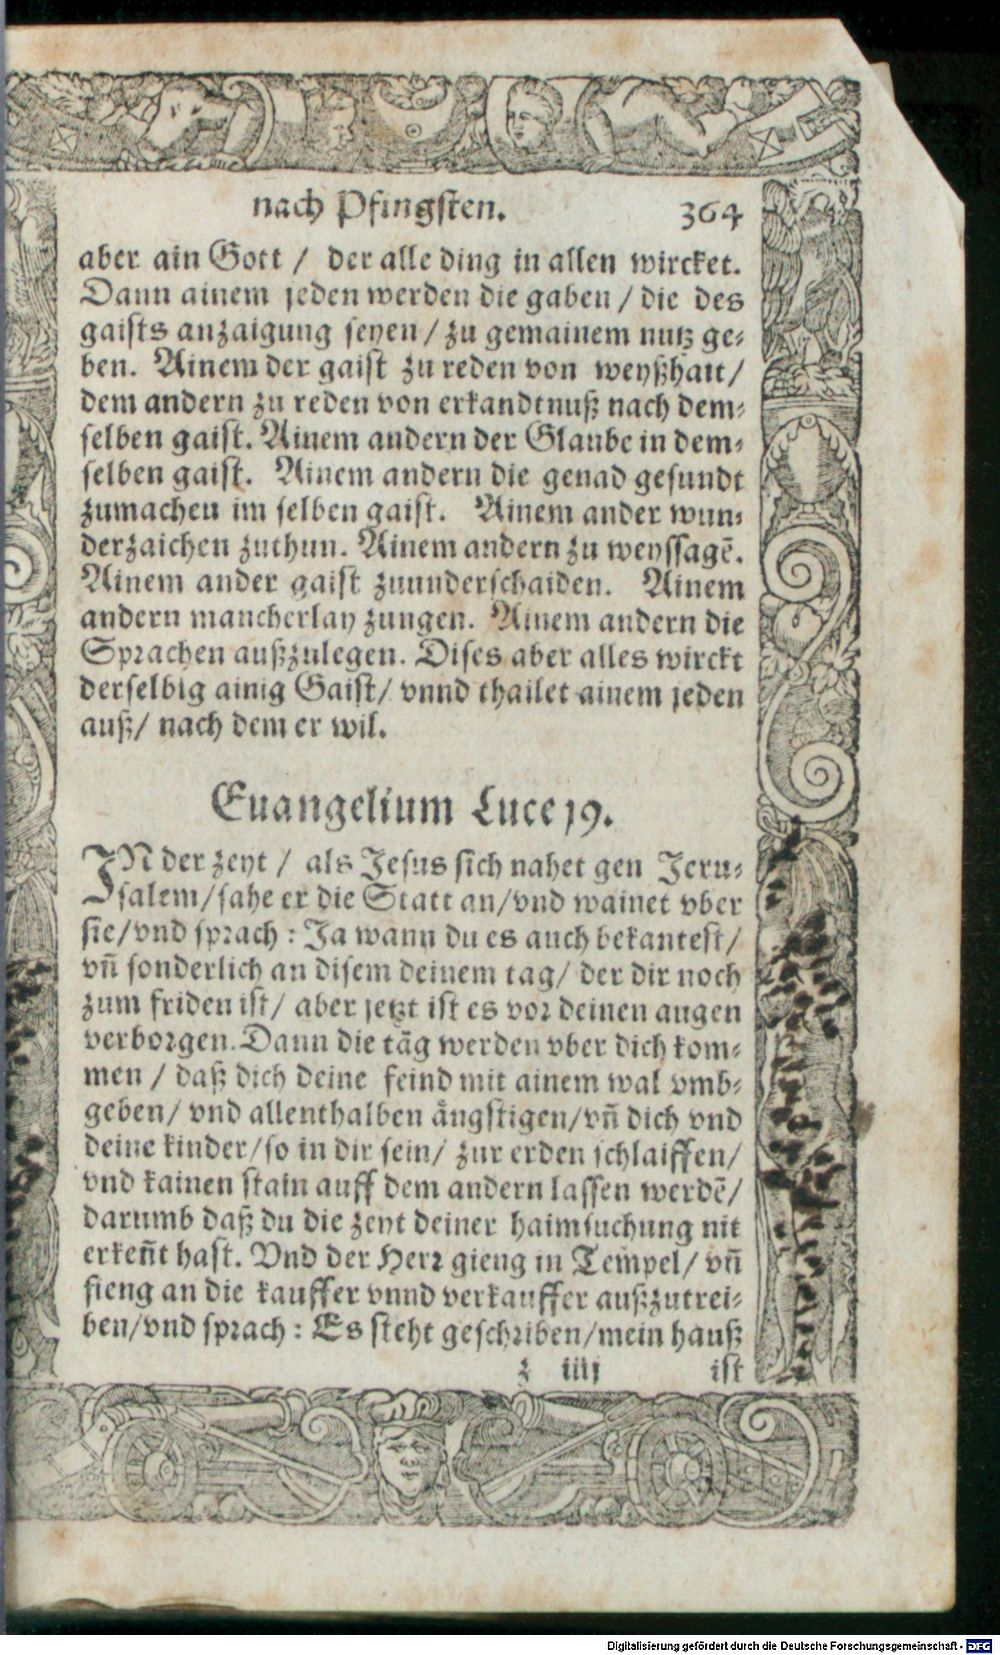 nach Pfingsten. 364
aber ain Gott / der alle ding in allen wircket.
Dann ainem jeden werden die gaben / die des
gaists anzaigung seyen / zu gemainem nutz ge⸗
ben. Ainem der gaist zu reden von weyßhait /
dem andern zu reden von erkandtnuß nach dem⸗
selben gaist. Ainem andern der Glaube in dem⸗
selben gaist. Ainem andern die genad gesundt
zumachen im selben gaist. Ainem ander wun⸗
derzaichen zuthun. Ainem andern zu weyssagē.
Ainem ander gaist zuunderschaiden. Ainem
andern mancherlay zungen. Ainem andern die
Sprachen außzulegen. Dises aber alles wirckt
derselbig ainig Gaist / vnnd thailet ainem jeden
auß / nach dem er wil.
Euangelium Luce 19.
IN der zeyt / als Jesus sich nahet gen Jeru⸗
salem / sahe er die Statt an / vnd wainet vber
sie / vnd sprach : Ja wann du es auch bekantest /
vn̄ sonderlich an disem deinem tag / der dir noch
zum friden ist / aber jetzt ist es vor deinen augen
verborgen. Dann die täg werden vber dich kom⸗
men / daß dich deine feind mit ainem wal vmb⸗
geben / vnd allenthalben ängstigen / vn̄ dich vnd
deine kinder / so in dir sein / zur erden schlaiffen /
vnd kainen stain auff dem andern lassen werdē /
darumb daß du die zeyt deiner haimsuchung nit
erken̄t hast. Vnd der Herr gieng in Tempel / vn̄
fieng an die kauffer vnnd verkauffer außzutrei⸗
ben / vnd sprach : Es steht geschriben / mein hauß
z iiij ist
Digitalisierung gefördert durch die Deutsche Forschungsgemeinschaft - DFG